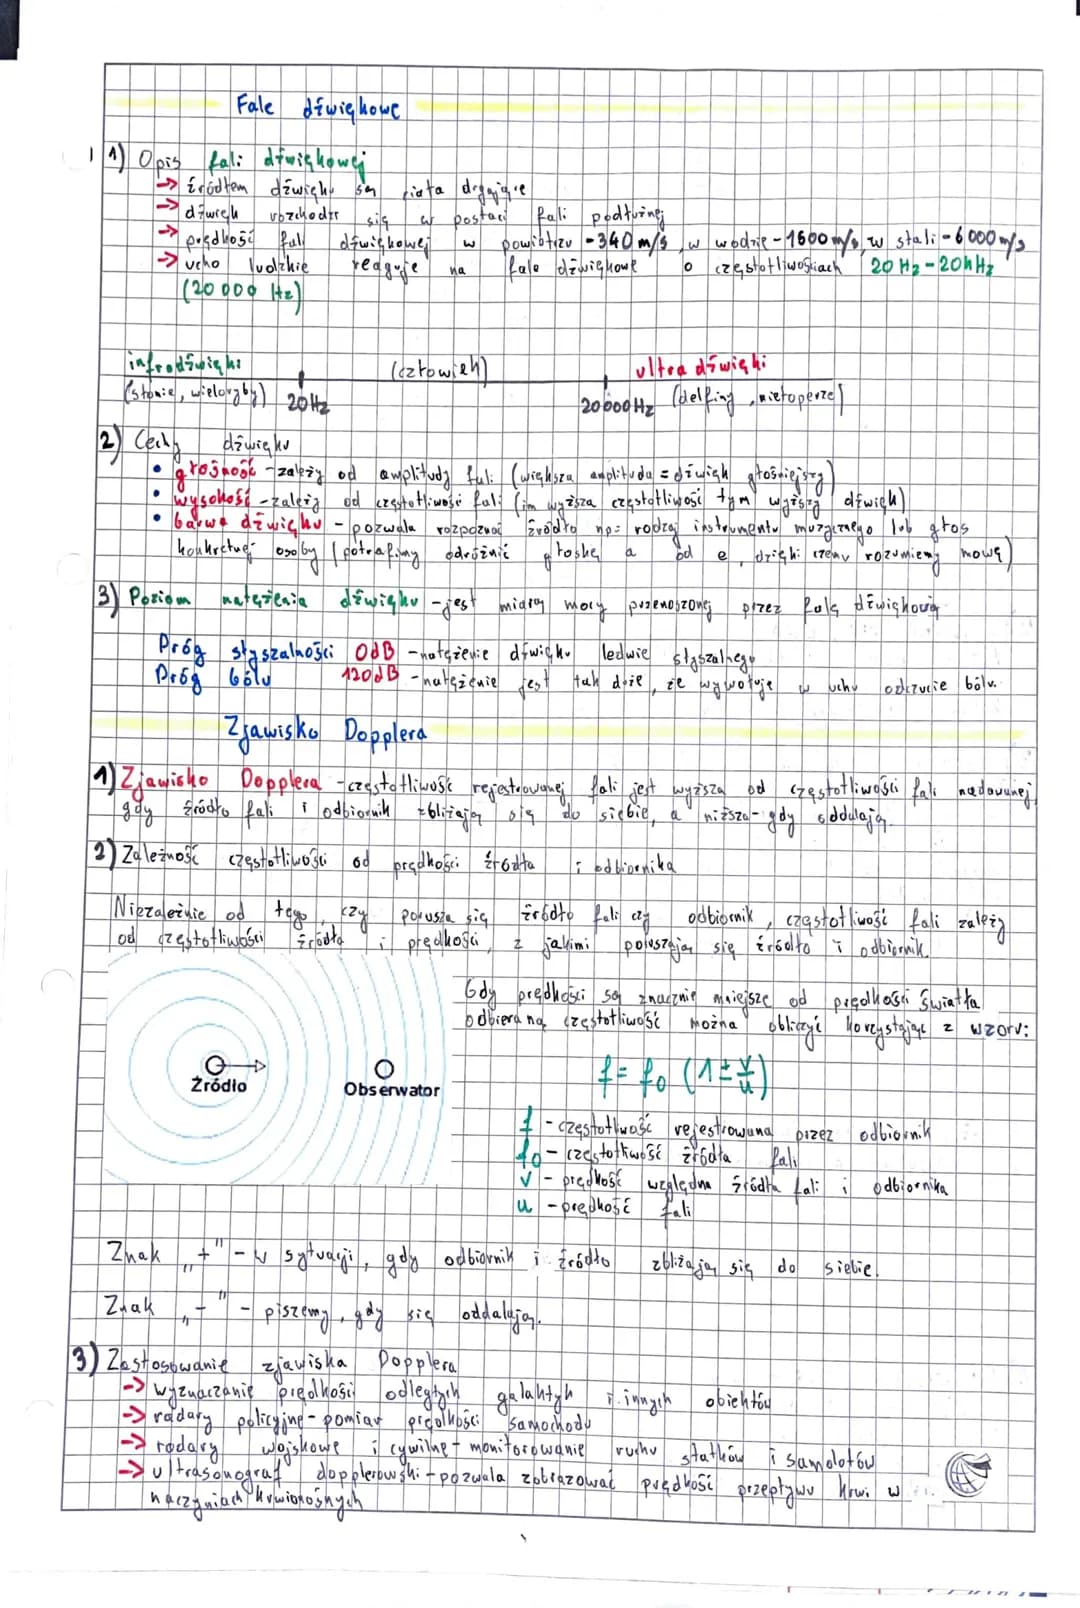 Fale dźwiękowe
1) Opis fali dźwiękowej
→ źródłem dźwięku są ciała drgające
→ dźwięk rozchodzi się w postaci fali podłużnej
→ prędkość fali dźwiękowej w powietrzu - 340 m/s, w wodzie - 1500 m/s, w stali - 6000 m/s
→ ucho ludzkie reaguje na fale dźwiękowe o częstotliwościach 20 Hz - 20kHz
(20 000 Hz)
infradźwięki (człowiek) ultradźwięki
(słonie, wieloryby) 20 Hz 20 000 Hz (delfiny, nietoperze)
2) Cechy dźwięku
• głośność - zależy od amplitudy fali (większa amplituda = dźwięk głośniejszy)
• wysokość - zależy od częstotliwości fali (im wyższa częstotliwość tym wyższy dźwięk)
• barwa dźwięku - pozwala rozpoznać źródło np: rodzaj instrumentu muzycznego lub głos
konkretnej osoby (potrafimy odróżnić głoskę a od e, dzięki czemu rozumiemy mowę)
3) Poziom natężenia dźwięku - jest miarą mocy przenoszonej przez falę dźwiękową
Próg słyszalności 0dB - natężenie dźwięku ledwie słyszalnego
Próg bólu 120dB - natężenie jest tak duże, że wywołuje w uchu odczucie bólu.
Zjawisko Dopplera
1) Zjawisko Dopplera - częstotliwość rejestrowanej fali jest wyższa od częstotliwości fali nadawanej,
gdy źródło fali i odbiornik zbliżają się do siebie, a niższa - gdy oddalają.
2) Zależność częstotliwości od prędkości źródła i odbiornika
Niezależnie od tego, czy porusza się źródło fali czy odbiornik, częstotliwość fali zależy
od częstotliwości źródła i prędkości, z jakimi poruszają się źródło i odbiornik.
Gdy prędkości są znacznie mniejsze od prędkości światła
odbieraną częstotliwość można obliczyć korzystając z wzoru:
Źródło
Obserwator
f = f₀ (1 ± v/u)
f - częstotliwość rejestrowana przez odbiornik
f₀ - częstotliwość źródła fali
v - prędkość względna źródła fali i odbiornika
u - prędkość fali
Znak „+" - w sytuacji, gdy odbiornik i źródło zbliżają się do siebie.
Znak „-" - piszemy, gdy się oddalają.
3) Zastosowanie zjawiska Dopplera
→ wyznaczanie prędkości odległych galaktyk i innych obiektów
→ radary policyjne - pomiar prędkości samochodu
→ radary wojskowe i cywilne - monitorowanie ruchu statków i samolotów
→ ultrasonograf dopplerowski - pozwala zobrazować prędkość przepływu krwi w
naczyniach krwionośnych